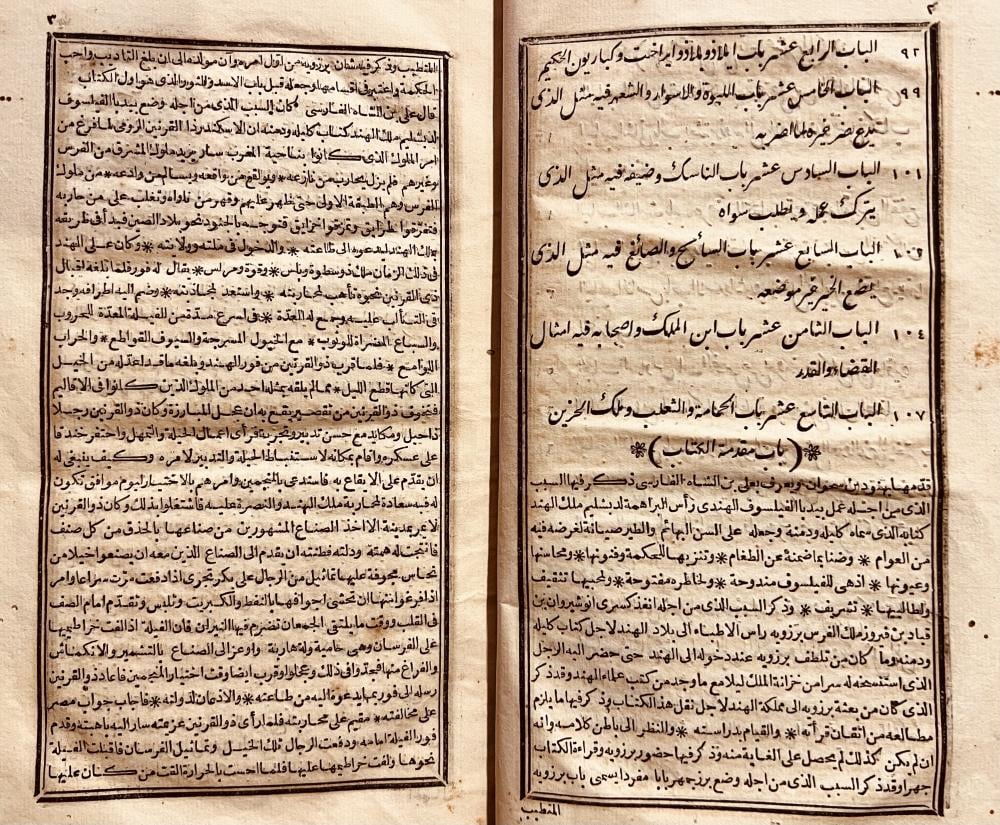 ٢
٩٢ الباب الرابع عشر باب ايلاذ وبلاذ وايراخت وكباريون الحكيم
٩٩ الباب الخامس عشر باب اللبوة والاسوار والشعهر فيه مثل الذى
يدع ضر غيره لما اضر به
١٠١ الباب السادس عشر باب الناسك وضيفه فيه مثل الذى
يترك عمله ويطلب سواه
الباب السابع عشر باب السائح والصائغ فيه مثل الذى
يضع الخير غير موضعه
١٠٤ الباب الثامن عشر باب ابن الملك واصحابه فيه امثال
القضاء والقدر
١٠٧ الباب التاسع عشر باب الحمامة والثعلب وملك الحزين
*(باب مقدمة الكتاب)*
قدمها بهنود بن سحوان ويعرف بعلى بن الشاه الفارسى ذكر فيها السبب
الذى من اجله عمل بيدبا الفيلسوف الهندى رأس البراهمة لدبشليم ملك الهند
كتابه الذى سماه كليله ودمنة وجعله على السن البهائم والطير صيانة لغرضه فيه
من العوام * وضنا بما ضمنه عن الطغام * وتنزيها للحكمة وفنونها * ومحاسنها
وعيونها * اذ هى للفيلسوف مندوحة * ولخاطره مفتوحة * ولمحبيها تثقيف
ولطالبيها * تشريف * وذكر السبب الذى من اجله انفذ كسرى انوشيروان بن
قباد بن فيروز ملك الفرس برزويه راس الاطباء الى بلاد الهند لاجل كتاب كليله
ودمنه وما كان من تلطف برزويه عند دخوله الى الهند حتى حضر اليه الرجل
الذى استنسخه له سرا من خزانة الملك ليلا مع ما وجد من كتب علماء الهند وقد ذكر
الذى كان من بعثة برزويه الى مملكة الهند لاجل نقل هذا الكتاب وذكر فيها ما يلزم
مطالعه من اتقان قرأته * والقيام بدراسته * والنظر الى باطن كلامه وانه
ان لم يكن كذلك لم يحصل على الغاية منه وذكر فيها حضور برزويه وقراءة الكتاب
جهرا وقد ذكر السبب الذى من اجله وضع بزرجمهر بابا مفردا يسمى باب برزويه
المتطبب
٣
المتطبب وذكر فيه شان برزويه من اول امره وآن مولده الى ان بلغ التاديب واحب
الحكمة واعتبر فى اقسامها وجعله قبل باب الاسد والثور الذى هو اول الكتاب
قال على بن الشاه الفارسى كان السبب الذى من اجله وضع بيدبا الفيلسوف
لدبشليم ملك الهند كتاب كليله ودمنه ان الاسكندر ذا القرنين الرومى لما فرغ من
امر الملوك الذى كانوا بناحية المغرب سار يريد ملوك المشرق من الفرس
وغيرهم فلم يزل يحارب من نازعه * ويواقع من واقعه ويسالم من وادعه * من ملوك
الفرس وهم الطبقة الاولى حتى ظهر عليهم وقهر من ناواه وتغلب على من حاربه
فتفرقوا طرايق وتمزقوا حزايق فتوجه بالجنود نحو بلاد الصين فبدأ فى طريقه
بملك الهند ليدعوه الى طاعته * والدخول فى ملته وولايته * وكان على الهند
فى ذلك الزمان ملك ذو سطوة وباس * وقوة ومراس * يقال له فور فلما بلغه اقبال
ذى القرنين نحوه تأهب لمحاربته * واستعد لمجاذبته * وضم اليه اطرافه وجد
فى التألب عليه وجمع له العدة * فى اسرع مدة من الفيلة المعدة للحروب
والسباع المضراة للوثوب * مع الخيول المسرجة والسيوف القواطع * والحراب
اللوامع * فلما قرب ذو القرنين من فور الهند وبلغه ما قد اعد له من الخيل
التى كانها قطع الليل * مما لم يلقه بمثله احد من الملوك الذين كانوا فى الاقاليم
فتخوف ذو القرنين من تقصير يقع به ان عجل المبارزة وكان ذو القرنين رجلا
ذا حيل ومكايد مع حسن تدبير وتجربة فرأى اعمال الحيلة والتمهل واحتفر خندقا
على عسكره واقام بمكانه لاستنباط الحيلة والتدبير لامره وكيف ينبغى له
ان يقدم على الايقاع به فاستدعى بالمنجمين وامرهم بالاختيار ليوم موافق تكون
له فيه سعادة لمحاربة ملك الهند والنصرة عليه فاشتغلوا بذلك وكان ذو القرنين
لا يمر بمدينة الا اخذ الصناع المشهورين من صناعها بالحذق من كل صنف
فانتجت له همته ودلته فطنته ان يقدم الى الصناع الذين معه ان يصنعوا خيلا من
نحاس مجوفة عليها تماثيل من الرجال على بكر تجرى اذا دفعت مرت سراعا وامر
اذا فرغوا منها ان تحشى اجوافها بالنفط والكبريت وتلبس وتقدم امام الصف
فى القلب ووقت ما يلتقى الجمعان تضرم فيها النيران فان الفيلة اذا لفت خراطيمها
على الفرسان وهى حامية ولت هاربة واوعز الى الصناع بالتشمير والانكماش
والفراغ منها فجدوا فى ذلك وعجلوا وقرب ايضا وقت اختيار المنجمين فاعاد ذو القرنين
رسله الى فور بما يدعوه اليه من طاعته * والاذعان لدولته * فاجاب جواب مصر
على مخالفته * مقيم على محاربته فلما رأى ذو القرنين عزيمته سار اليه باهبته وقدم
فور الفيلة امامه ودفعت الرجال تلك الخيل وتماثيل الفرسان فاقبلت الفيلة
نحوها ولفت خراطيمها عليها فلما احست بالحرارة القت من كان عليها